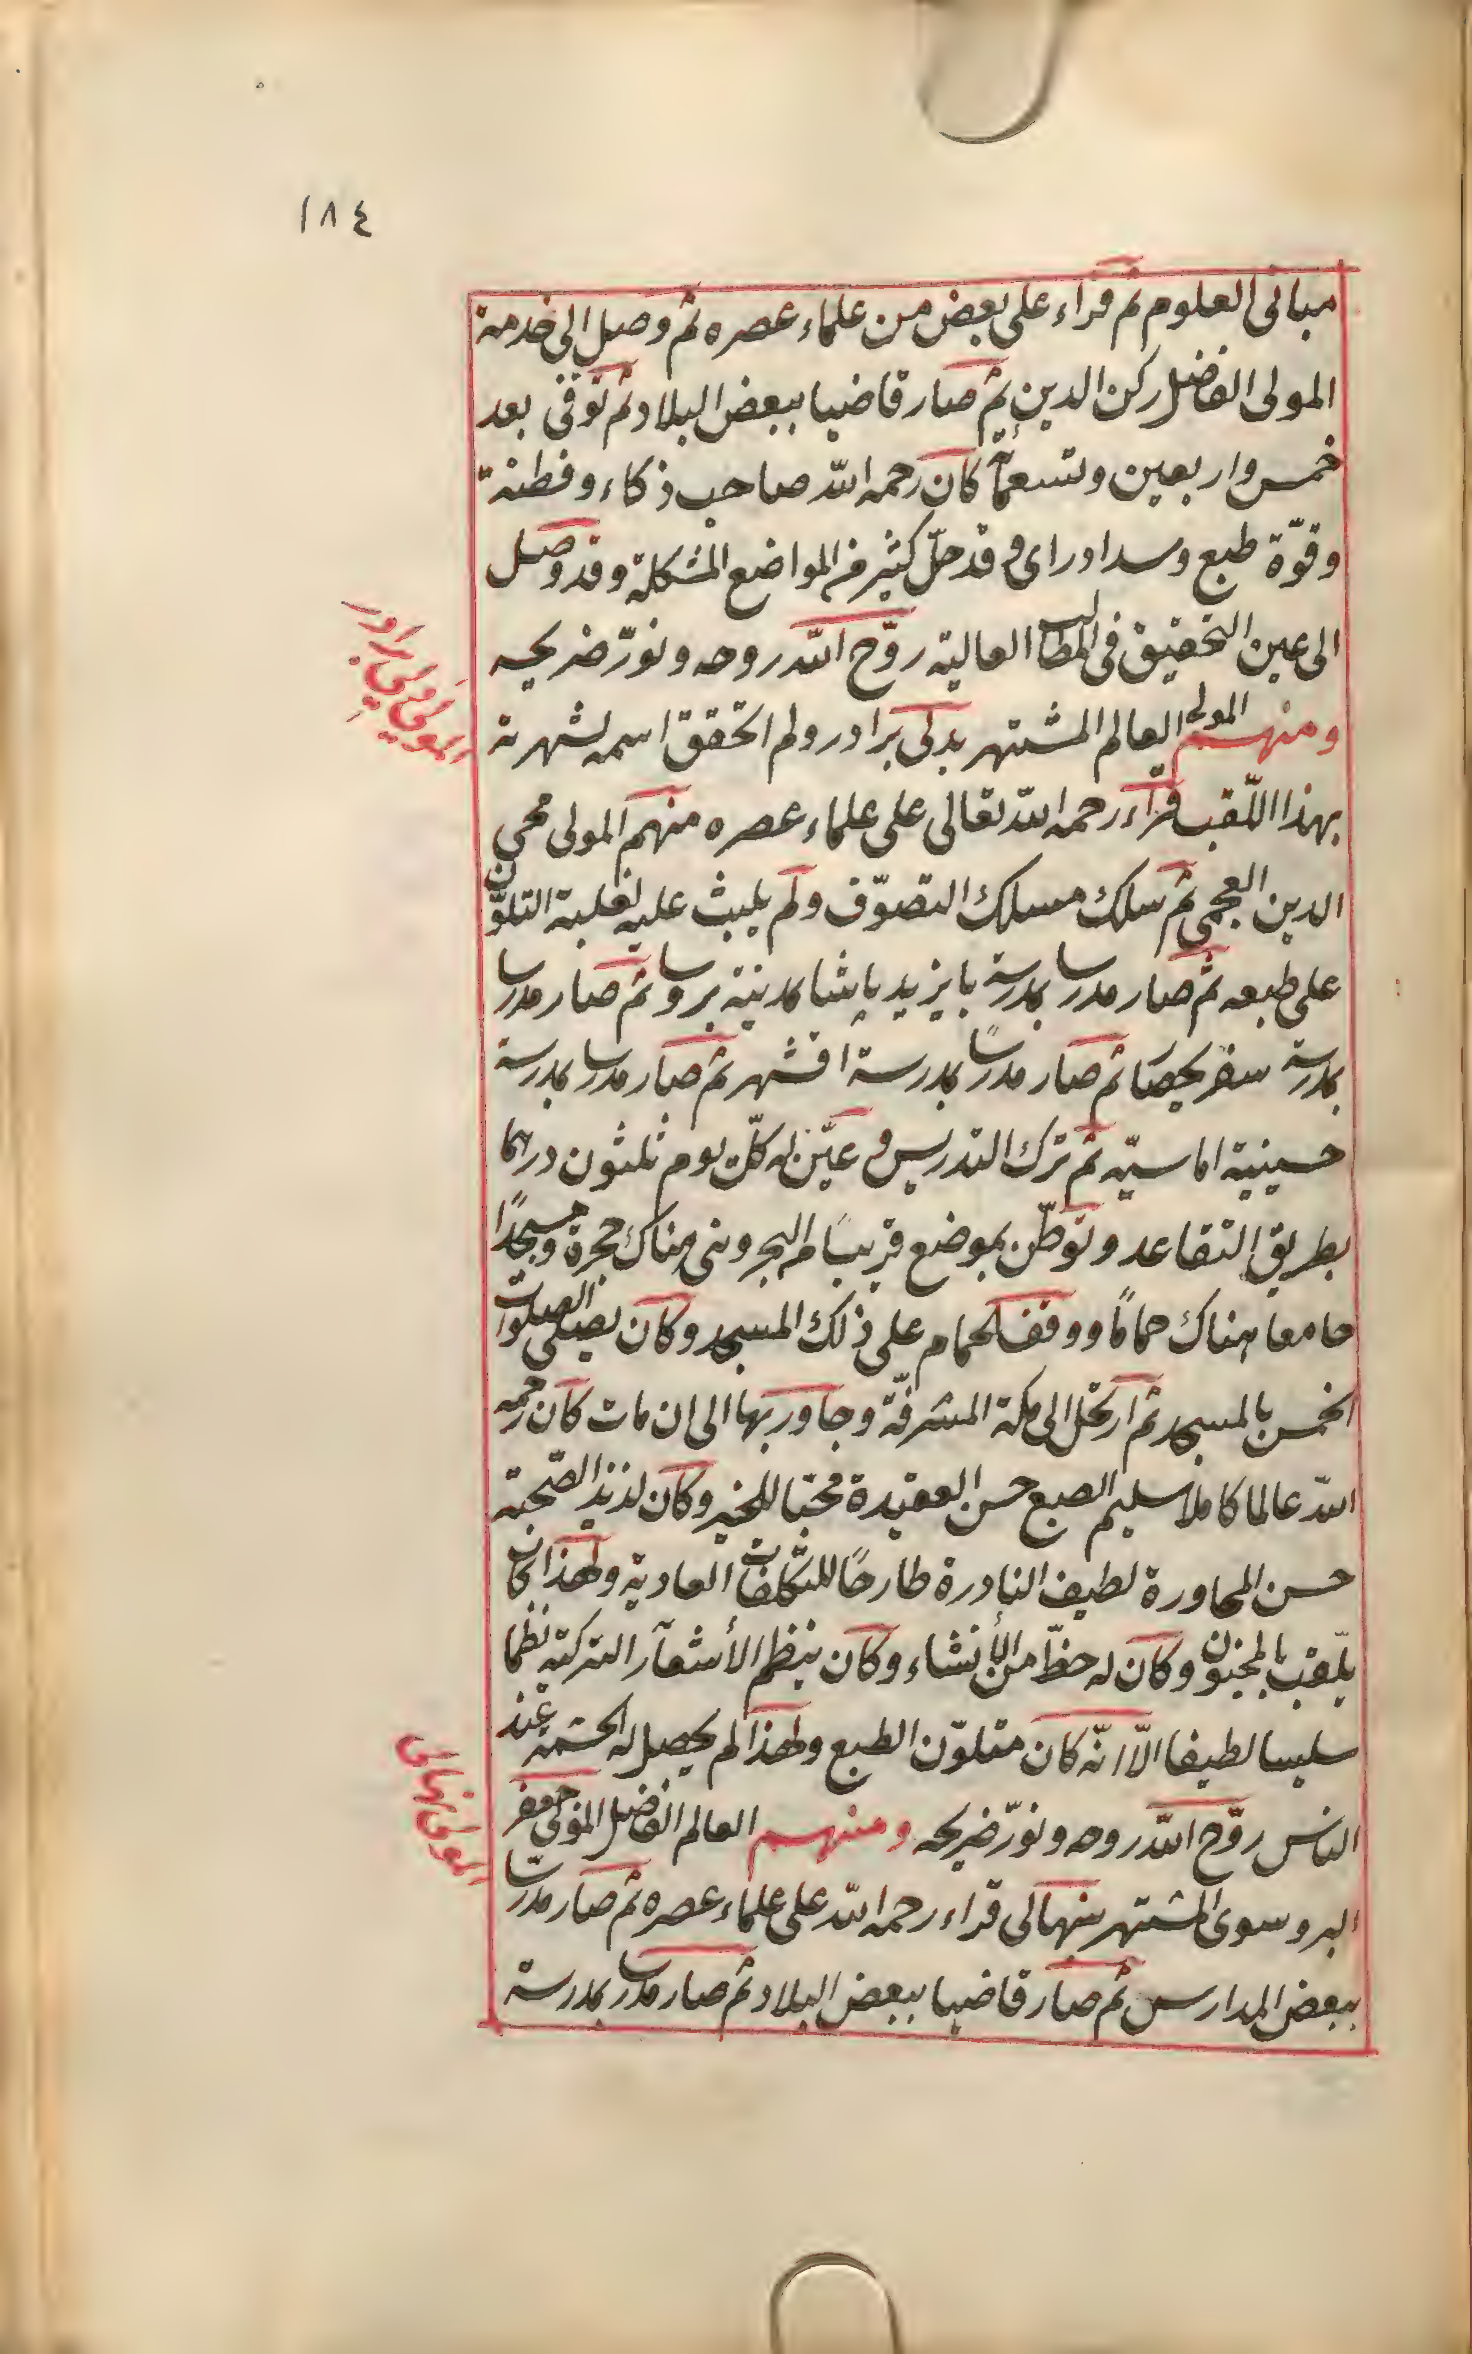 ١٨٤
مبانى العلوم ثم قراء على بعض من علماء عصره ثم وصل الى خدمة
المولى الفاضل ركن الدين ثم صار قاضيا ببعض البلاد ثم توفى بعد
خمس واربعين وتسعمائة كان رحمه الله صاحب ذكاء وفطنة
وقوّة طبع وسداد راى وقد حلّ كثير من المواضع المشكلة وقد وصل
الى عين التحقيق فى المطالب العالية روّح الله روحه ونوّر ضريحه
ومنهم المولى العالم المشتهر بدلى برادر ولم اتحقق اسمه لشهرته
بهذا اللّقب قراء رحمه الله تعالى على علماء عصره منهم المولى محيى
الدين العجمى ثم سلك مسلك التصوّف ولم يلبث عليه لغلبة التلوّن
على طبعه ثم صار مدرسا بمدرسة بايزيد پاشا بمدينة بروسا ثم صار مدرسا
بمدرسة سفريحصا ثم صار مدرسًا بمدرسة اقشهر ثم صار مدرسا بمدرسة
حسينية اماسيّه ثم ترك التدريس وعيّن له كلّ يوم ثلثون درهما
بطريق التقاعد وتوطّن بموضع قريبًا من البحر وبنى هناك حجرة ومسجدًا
جامعا هناك حمامًا ووقف الحمام على ذلك المسجد وكان يصلى الصلوات
الخمس بالمسجد ثم ارتحل الى مكة المشرفّة وجاور بها الى ان مات كان رحمه
الله عالما كاملا سليم الصبع حسن العقيدة محبّا للخير وكان لذيذ الصّحبة
حسن المحاورة لطيف النادرة طارحًا للتكلّفات العادية ولهذا كان
يلّقب بالمجنون وكان له حظّ من الإنشاء وكان ينظم الأشعار التركية نظما
سليسا لطيفا الّا انّه كان متلوّن الطبع ولهذا لم يحصل له الحشمة عند
الناس روّح الله روحه ونوّر ضريحه ومنهم العالم الفاضل المولى جعفر
البروسوى المشتهر بنهالى قراء رحمه الله على علماء عصره ثم صار مدرسّا
ببعض المدارس ثم صار قاضيا ببعض البلاد ثم صار مدرسا بمدرسة
المولى دلى برادر
المولى نهالى